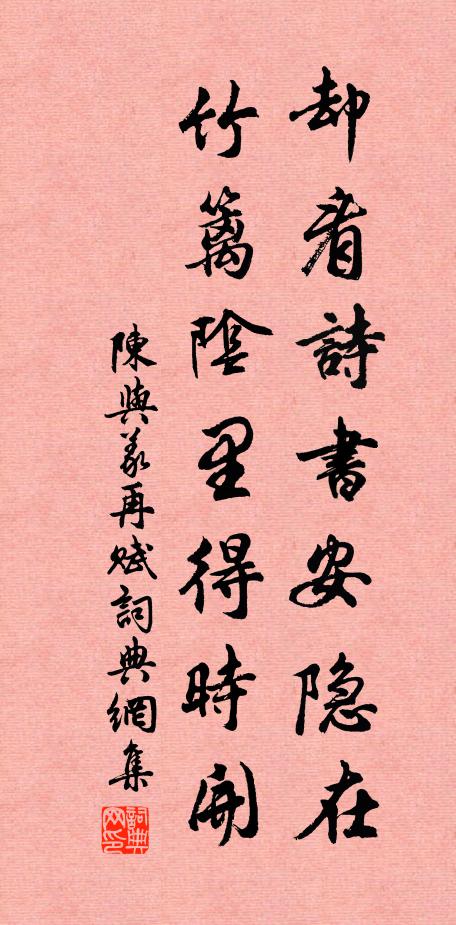 却看詩書安隐在
竹篱陰里得時開
陳與義再賦詞典網集
詞典網印